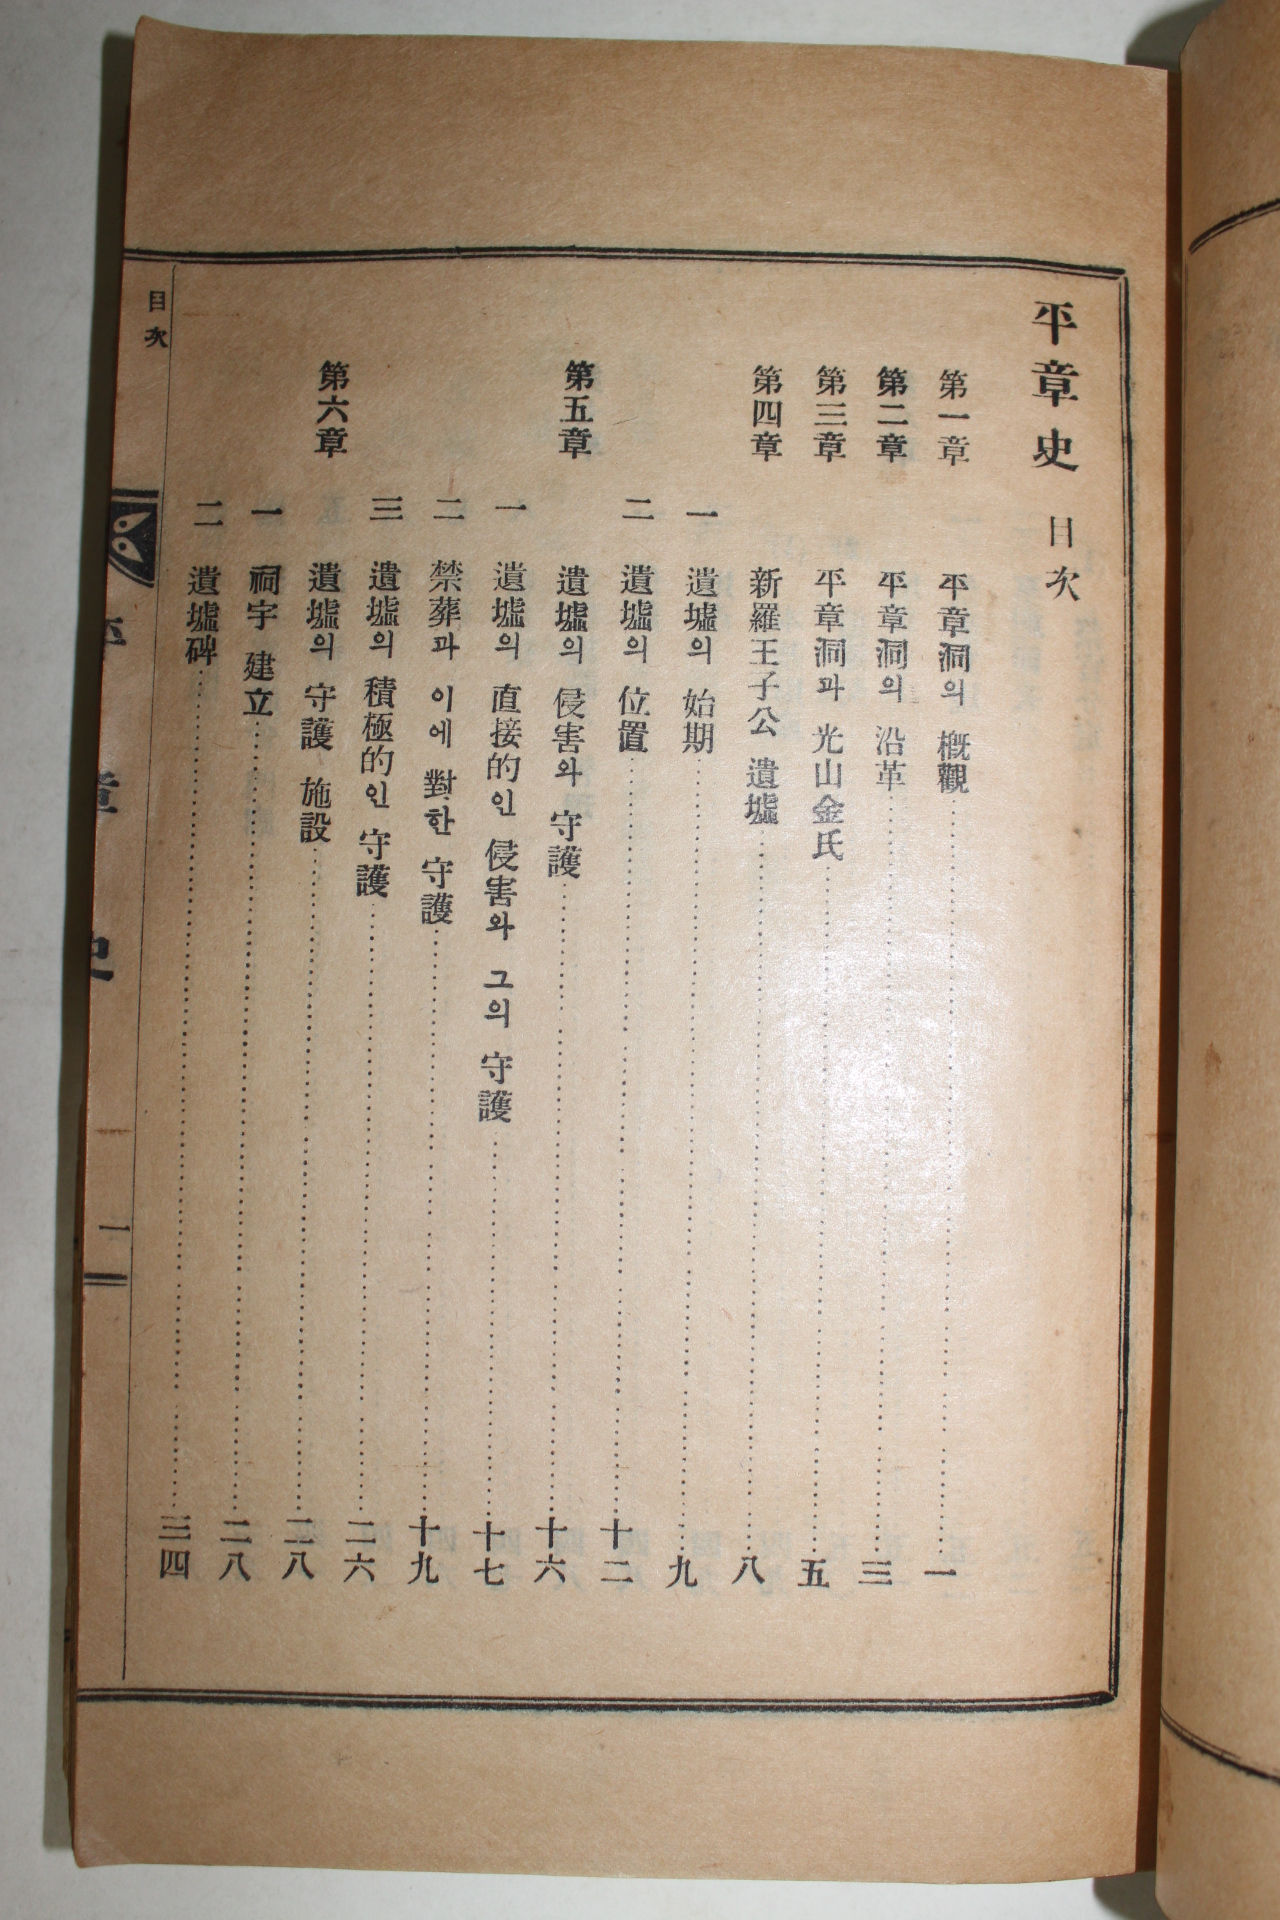 平章史 目次
第一章 平章洞의 槪觀……一
第二章 平章洞의 沿革……三
第三章 平章洞과 光山金氏……五
第四章 新羅王子公 遺墟……八
一 遺墟의 始期……九
二 遺墟의 位置……十二
第五章 遺墟의 侵害와 守護……十六
一 遺墟의 直接的인 侵害와 그의 守護……十七
二 禁葬과 이에 對한 守護……十九
三 遺墟의 積極的인 守護……二六
第六章 遺墟의 守護 施設……二八
一 祠宇 建立……二八
二 遺墟碑……三四
目次
平章史
一